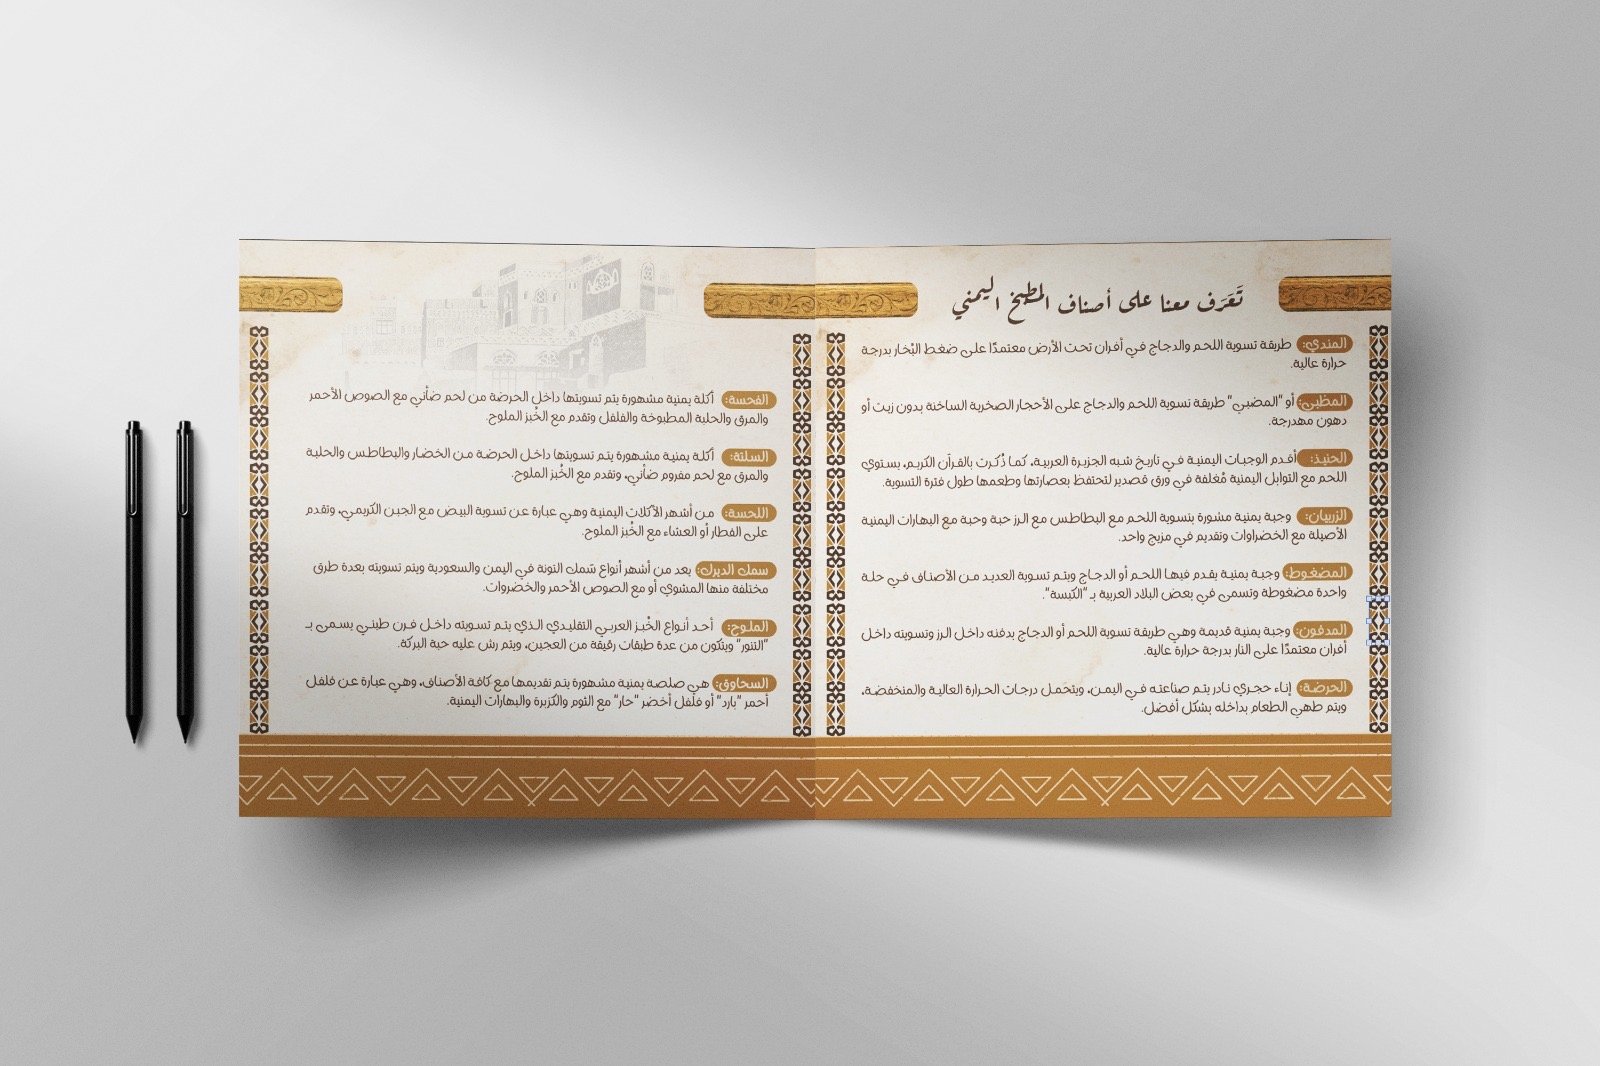 تَعَرَف معنا على أصناف المطبخ اليمني
المندي: طريقة تسوية اللحم والدجاج في أفران تحت الأرض معتمدًا على ضغط البُخار بدرجة
حرارة عالية.
المظبي: أو "المضبي" طريقة تسوية اللحم والدجاج على الأحجار الصخرية الساخنة بدون زيت أو
دهون مهدرجة.
الحنيذ: أقدم الوجبات اليمنية في تاريخ شبه الجزيرة العربية، كما ذُكرت بالقرآن الكريم، يستوي
اللحم مع التوابل اليمنية مُغلفة في ورق قصدير لتحتفظ بعصارتها وطعمها طول فترة التسوية.
الزربيان: وجبة يمنية مشورة بتسوية اللحم مع البطاطس مع الرز حبة وحبة مع البهارات اليمنية
الأصيلة مع الخضراوات وتقديم في مزيج واحد.
المضغوط: وجبة يمنية يقدم فيها اللحم أو الدجاج ويتم تسوية العديد من الأصناف في حلة
واحدة مضغوطة وتسمى في بعض البلاد العربية بـ "الكبسة".
المدفون: وجبة يمنية قديمة وهي طريقة تسوية اللحم أو الدجاج بدفنه داخل الرز وتسويته داخل
أفران معتمدًا على النار بدرجة حرارة عالية.
الحرضة: إناء حجري نادر يتم صناعته في اليمن، ويتحمل درجات الحرارة العالية والمنخفضة،
ويتم طهي الطعام بداخله بشكل أفضل.
الفحسة: أكلة يمنية مشهورة يتم تسويتها داخل الحرضة من لحم ضأني مع الصوص الأحمر
والمرق والحلبة المطبوخة والفلفل وتقدم مع الخُبز الملوح.
السلتة: أكلة يمنية مشهورة يتم تسويتها داخل الحرضة من الخضار والبطاطس والحلبة
والمرق مع لحم مفروم ضأني، وتقدم مع الخُبز الملوح.
اللحسة: من أشهر الأكلات اليمنية وهي عبارة عن تسوية البيض مع الجبن الكريمي، وتقدم
على الفطار أو العشاء مع الخُبز الملوح.
سمك الديرك: يعد من أشهر أنواع سَمك التونة في اليمن والسعودية ويتم تسويته بعدة طرق
مختلفة منها المشوي أو مع الصوص الأحمر والخضروات.
الملوح: أحد أنواع الخُبز العربي التقليدي الذي يتم تسويته داخل فرن طيني يسمى بـ
"التنور" ويتكون من عدة طبقات رقيقة من العجين، ويتم رش عليه حبة البركة.
السحاوق: هي صلصة يمنية مشهورة يتم تقديمها مع كافة الأصناف، وهي عبارة عن فلفل
أحمر "بارد" أو فلفل أخضر "حار" مع الثوم والكزبرة والبهارات اليمنية.